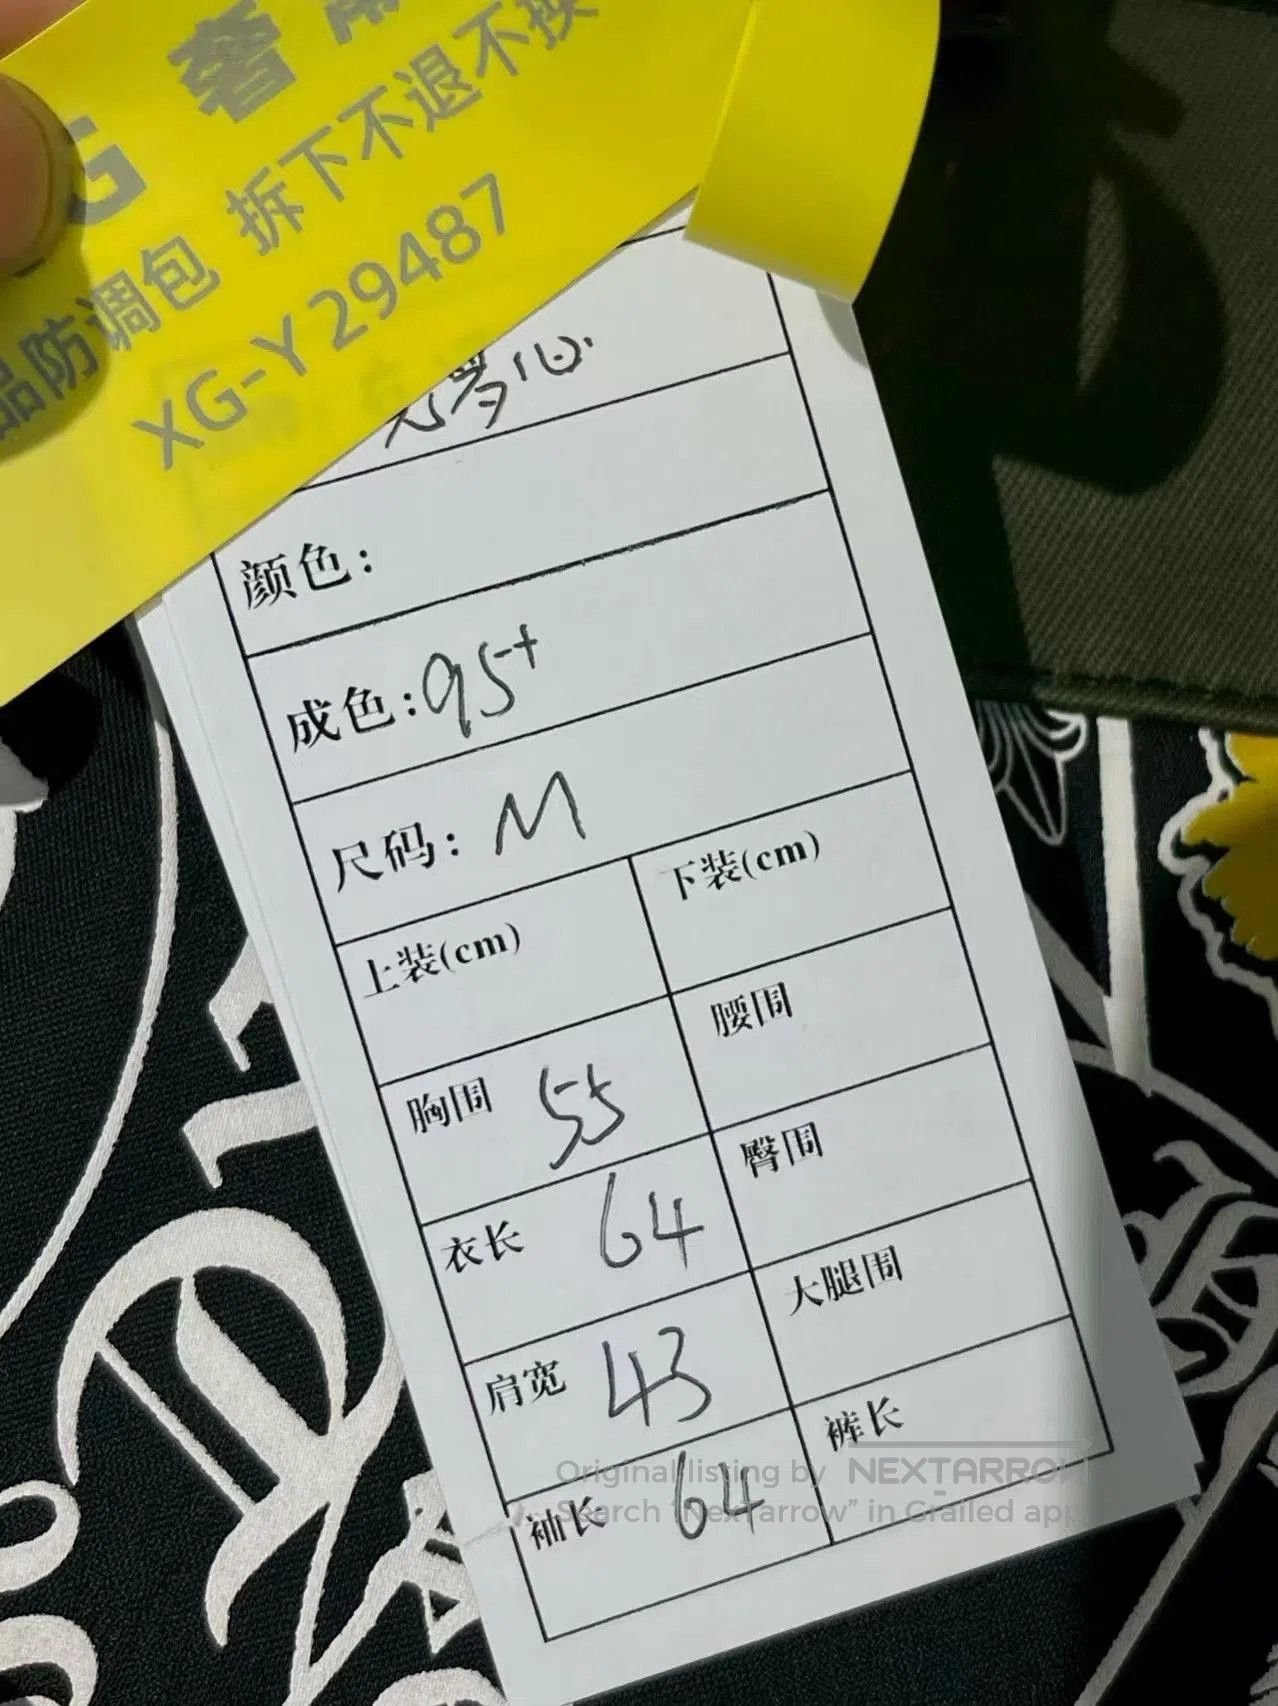 奢
G
品防调包 拆下不退不换
XG-Y29487
颜色:
成色:95+
尺码: M
上装(cm) 下装(cm)
胸围 55 腰围
衣长 64 臀围
肩宽 43 大腿围
袖长 64 裤长
Original listing by NEXTARROW
Search "NexTarrow" in Grailed app